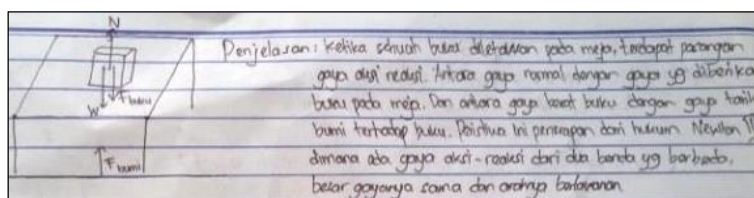 N
Penjelasan: Ketika sebuah buku diletakkan pada meja, terdapat pasangan
gaya aksi reaksi. Antara gaya normal dengan gaya yg diberikan
buku pada meja. Dan antara gaya berat buku dengan gaya tarik
bumi terhadap buku. Peistiwa ini penerapan dari hukum Newton III
dimana ada gaya aksi-reaksi dari dua benda yg berbeda,
besar gayanya sama dan arahnya berlawanan
W
F buku
F bumi